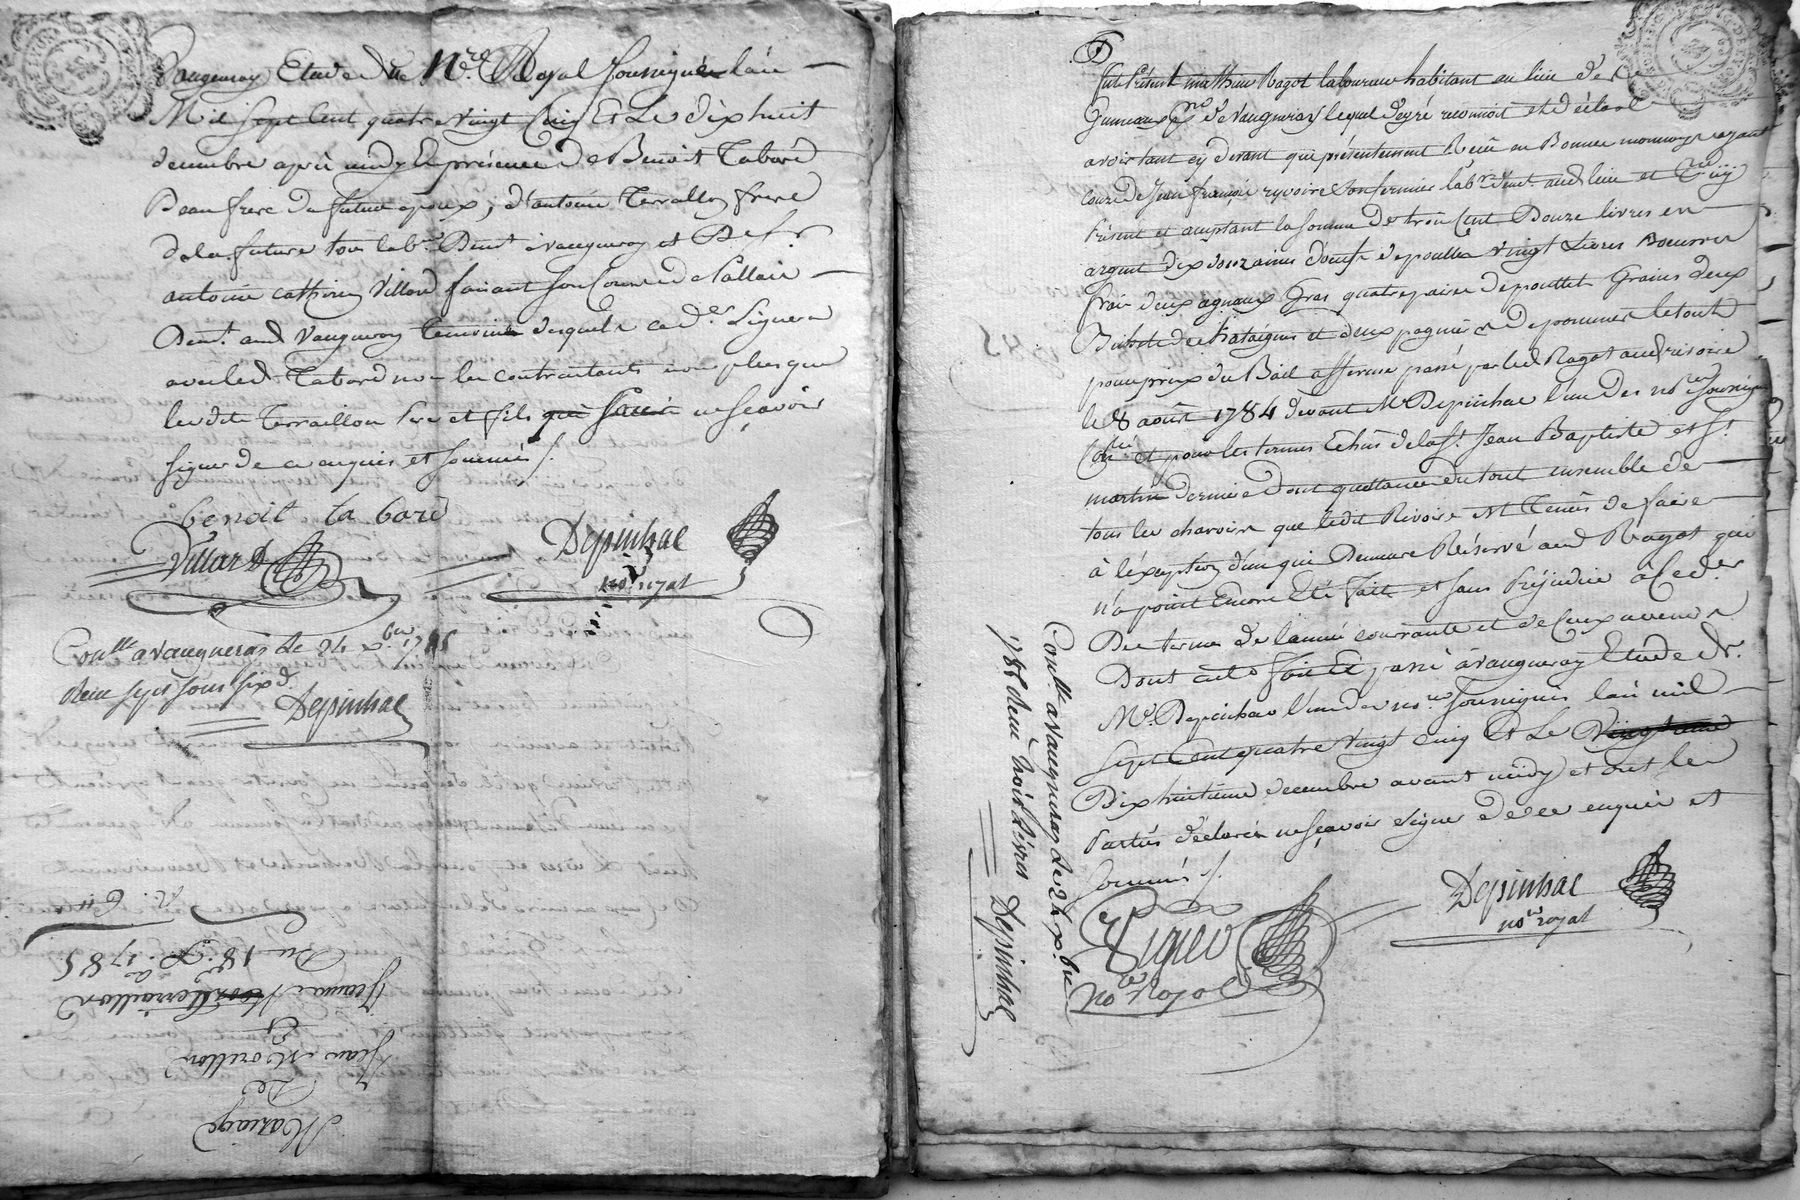 Vaugneray Etude du Mre. Royal soussigné lan
Mil Sept Cent quatre vingt Cinq Et Le dix huit
decembre apres midy En présence de Benoit Tabard
Beau frere du futur epoux, d'antoine Terraillon frere
de la future tous labrs. Demt. à vaugneray et De Sr.
antoine Villard faisant son Cours de
Demt. aud. Vaugneray temoins desquels
avec led. Tabard non les contractants non plus que
lesdits Terraillon Pere et fils ne sçavoir
signer de ce enquis et sommés /.
benoit ta bard
Villard
Depinhac
nore. royal
Conllé a vaugneray le 24 xbre 1785
Reçu sous six d.
Depinhac
Mariage
De
Jean Morillon
Et
Jeanne Terraillon
Du 18. Xbre. 1785
Fut Présent mathieu Ragot laboureur habitant au lieu de
psse de Vaugneray lequel de gré reconnoit et déclare
avoir tant cy devant que présentement Reçu en Bonne monnoye ayant
cours de Jean françois ryvoire son fermier labr. demt. aud. lieu et Psse icy
Présent et acceptant la somme de trois Cent Douze livres en
argent dix douzaines d'oeufs de poulles vingt Livres Boeurre
frais deux agneaux Gras quatre paire de poullets Grains deux
Bichets de Chataignes et deux pagniers de pommes le tout
pour prix du Bail a fferme passé par led. Ragot aud. rivoire
le 8 août 1784 devant Me Depinhac l'un des nores soussignés
Conllé et pour les termes Echus de la St. Jean Baptiste et St.
martin dernier Dont quittance du tout ensemble de
tous les charrois que ledit Rivoire est Tenus de faire
à l'éxception d'un qui Demure Réservé aud. Ragot qui
n'a point Encore Eté fait et sans Préjudice à Ceder
Des termes de l'année courrante et de Ceux avenir
Dont acte fait Et passé à vaugneray Etude de
Me. Depinhac l'un des nores soussignés lan mil
Sept Cent quatre vingt cinq Et Le
Dix huitième decembre avant midy et ont les
Parties déclarés ne sçavoir signer de ce enquis et
Sommés /.
Depinhac
nore royal
nore Royal
Conllé a Vaugneray le 24 xbre
1785 Reçu trois Livres Depinhac